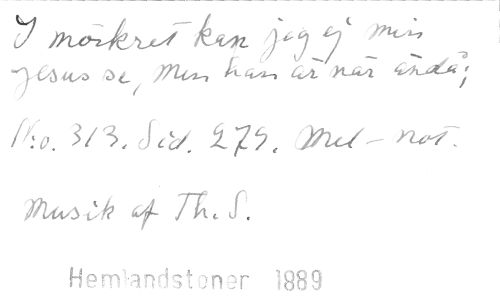 I mörkret kan jag ej min
Jesus se, men han är när ändå;
No. 313. Sid. 279. Mel-not.
Musik af Th. S.
Hemlandstoner 1889